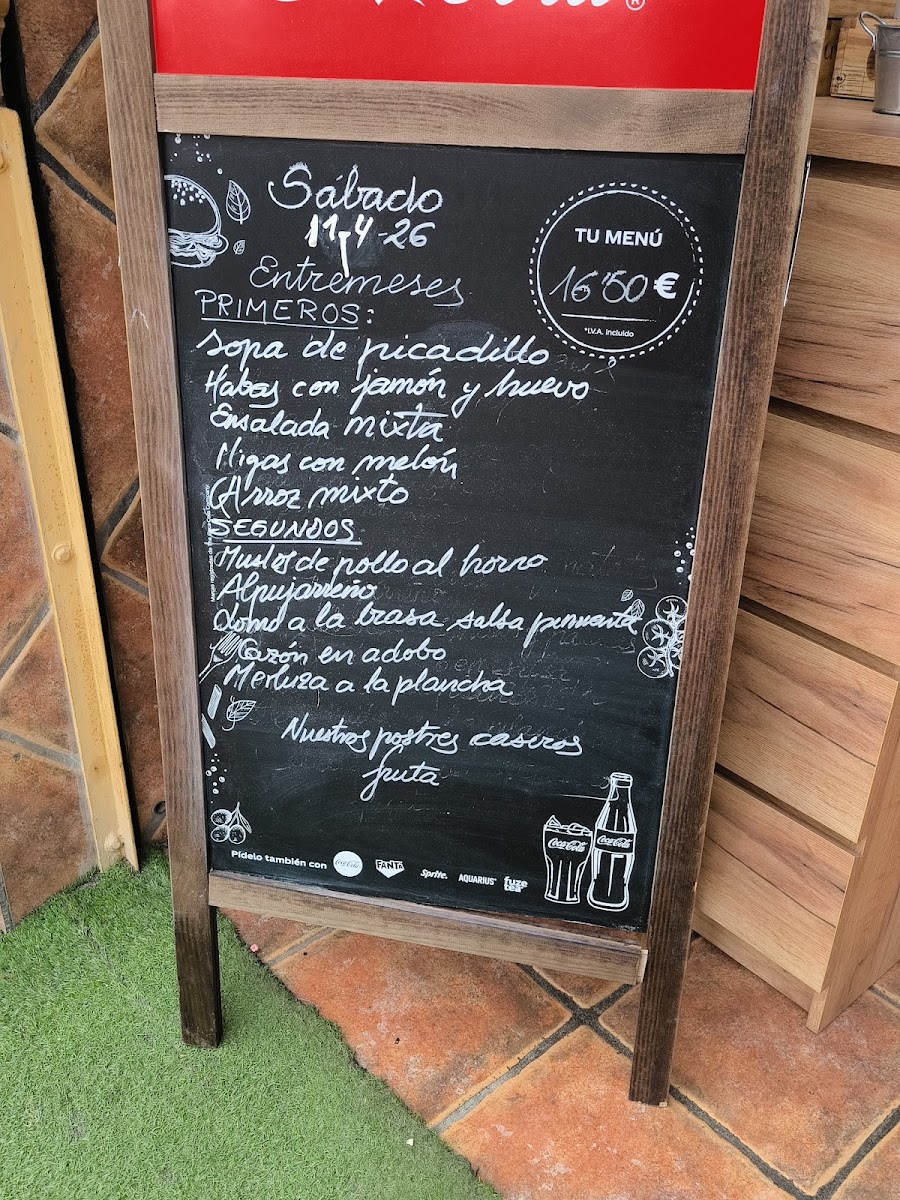 Sábado
11-4-26
TU MENÚ
16'50 €
*I.V.A. incluido
Entremeses
PRIMEROS:
Sopa de picadillo
Habas con jamón y huevo
Ensalada mixta
Migas con melón
Arroz mixto
SEGUNDOS
Muslos de pollo al horno
Alpujarreño
Lomo a la brasa salsa pimienta
Cazón en adobo
Merluza a la plancha
Nuestros postres caseros
fruta
Pídelo también con Coca-Cola FANTA Sprite. AQUARIUS fuze tea
Coca-Cola
Coca-Cola